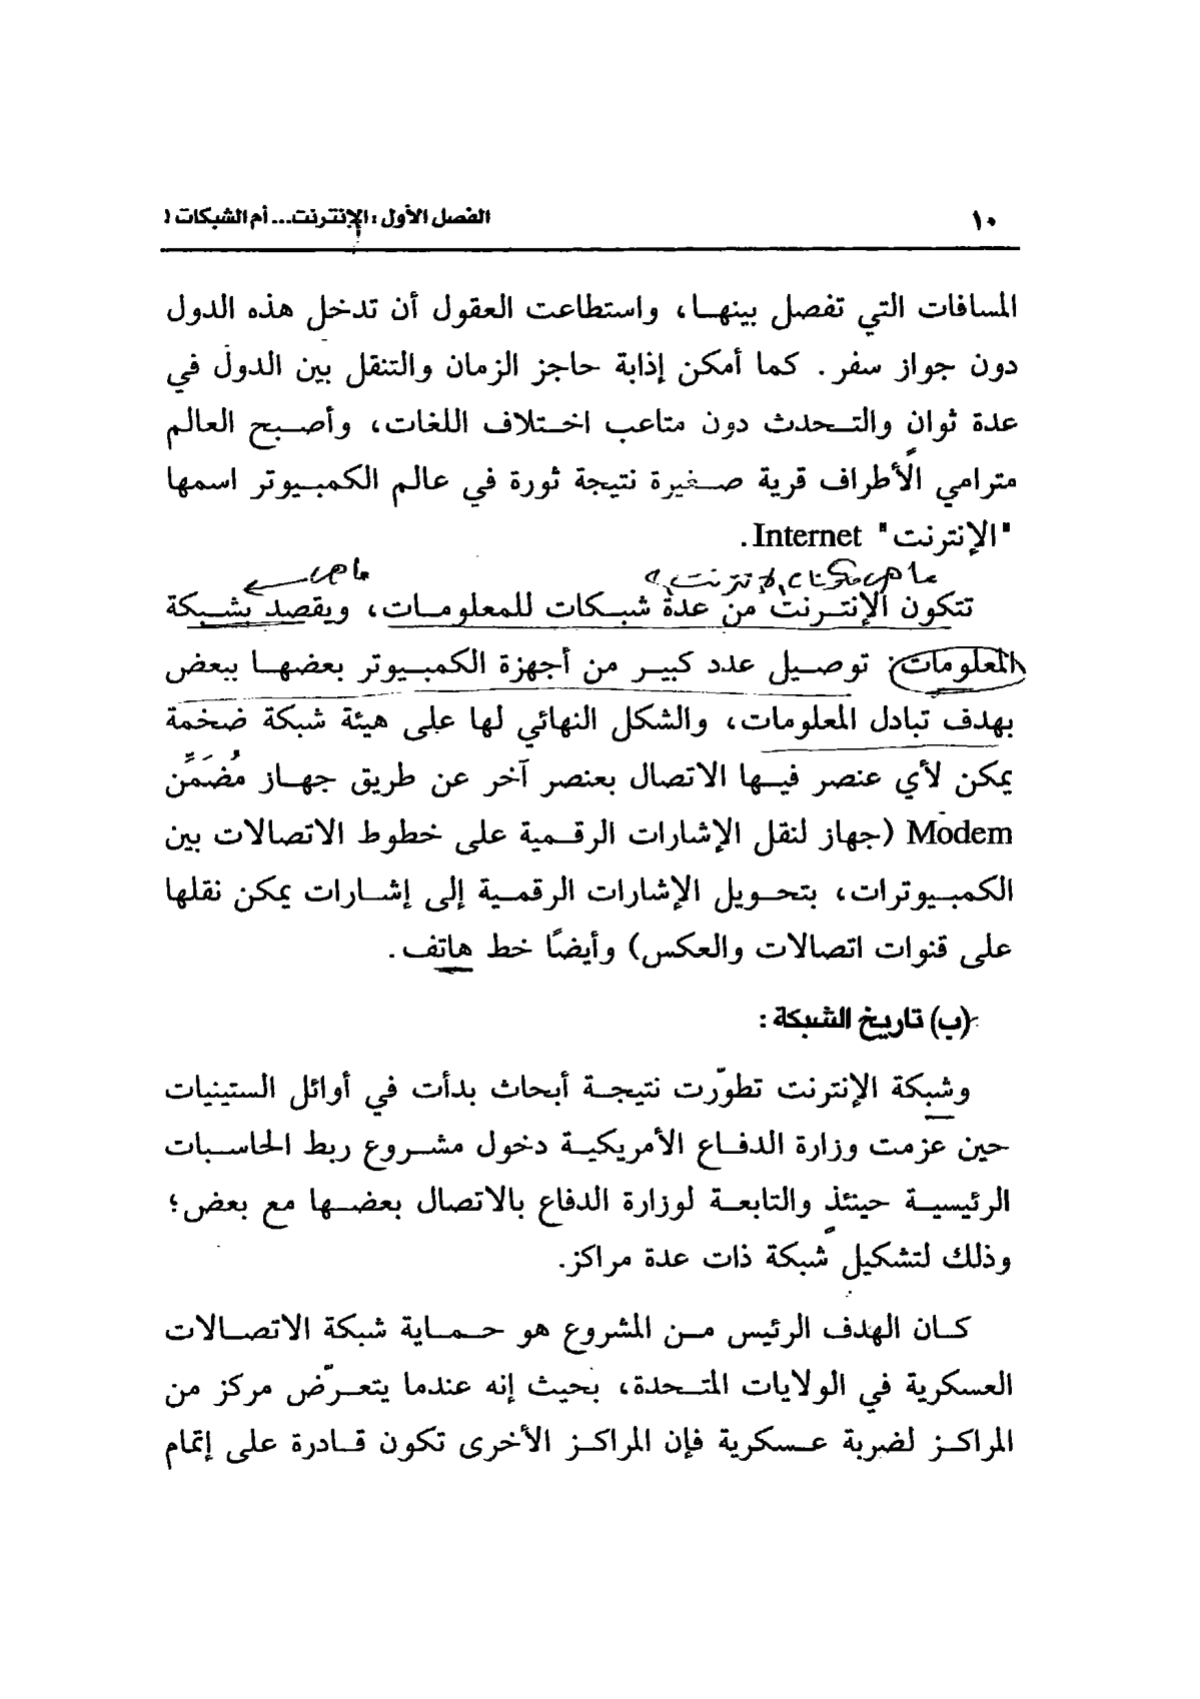 ١٠
الفصل الأول : الإنترنت... أم الشبكات !
المسافات التي تفصل بينهـا، واستطاعت العقول أن تدخل هذه الدول
دون جواز سفر . كما أمكن إذابة حاجز الزمان والتنقل بين الدول في
عدة ثوانٍ والتـحدث دون متاعب اختـلاف اللغات، وأصـبح العالم
مترامي الأطراف قرية صـغيرة نتيجة ثورة في عالم الكمبـيوتر اسمها
"الإنترنت" Internet .
ما هي مكونات الإنترنت ؟ ما هي
تتكون الإنتـرنت من عدة شبـكات للمعلومـات، ويقصد بشـبكة
المعلومات: توصـيل عدد كبيـر من أجهزة الكمبـيوتر بعضهـا ببعض
بهدف تبادل المعلومات، والشكل النهائي لها على هيئة شبكة ضخمة
يمكن لأي عنصر فيـها الاتصال بعنصر آخر عن طريق جهـاز مُضَمِّن
Modem (جهاز لنقل الإشارات الرقـمية على خطوط الاتصالات بين
الكمبـيوترات، بتحـويل الإشارات الرقمـية إلى إشـارات يمكن نقلها
على قنوات اتصالات والعكس) وأيضًا خط هاتف .
(ب) تاريخ الشبكة :
وشبكة الإنترنت تطوّرت نتيجـة أبحاث بدأت في أوائل الستينيات
حين عزمت وزارة الدفـاع الأمريكيـة دخول مشـروع ربط الحاسـبات
الرئيسيـة حينئذٍ والتابعـة لوزارة الدفاع بالاتصال بعضـها مع بعض؛
وذلك لتشكيل شبكة ذات عدة مراكز.
كـان الهدف الرئيس مـن المشروع هو حـمـاية شبكة الاتصـالات
العسكرية في الولايات المتـحدة، بحيث إنه عندما يتعـرّض مركز من
المراكـز لضربة عـسكرية فإن المراكـز الأخرى تكون قـادرة على إتمام